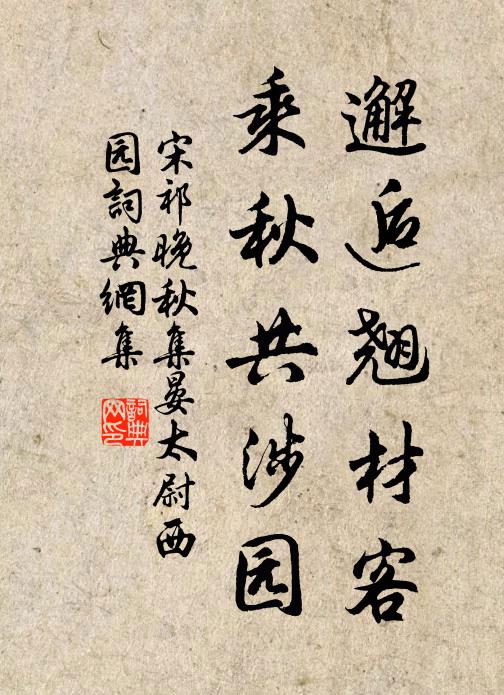 邂逅翘材客
乘秋共涉园
宋祁晚秋集晏太尉西
园詞典網集
詞典
网印